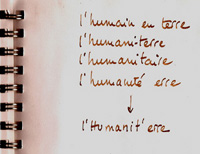 l'humain en terre
l'humani-terre
l'humanitaire
l'humanité erre
↓
l'Humanit'erre